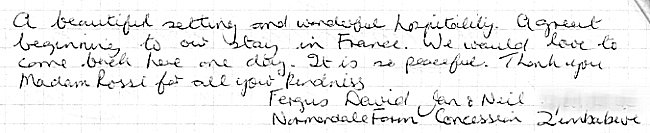 A beautiful setting and wonderful hospitality. A great
beginning to our stay in France. We would love to
come back here one day. It is so peaceful. Thank you
Madam Rossi for all your kindness
Fergus David Jan & Neil
Normandale Farm Concession Zimbabwe